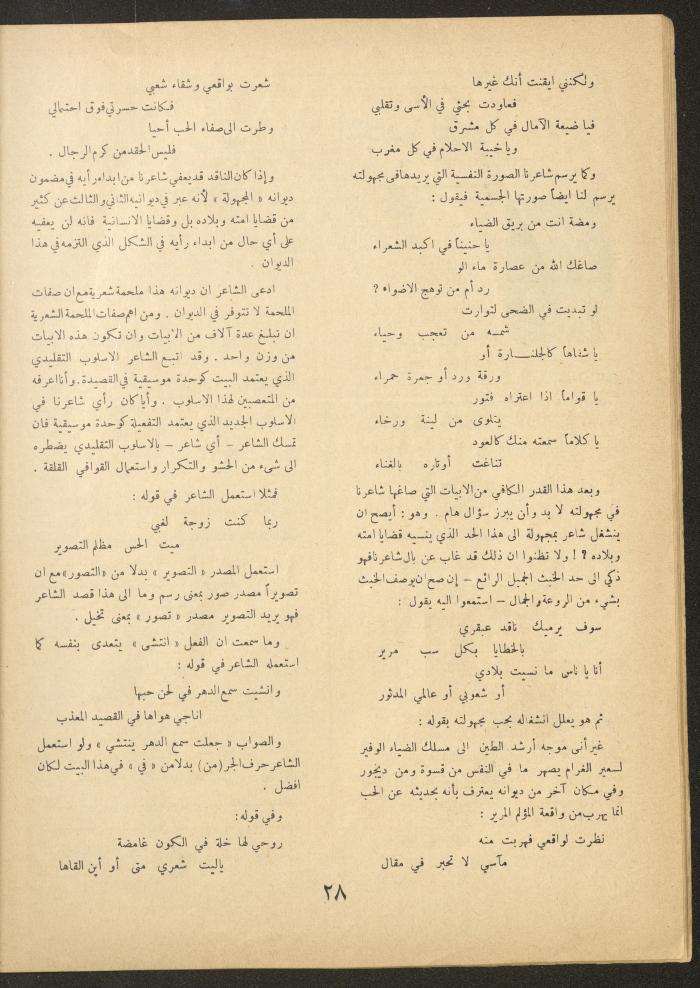 ولكنني ايقنت أنك غيرها
فعاودت بحثي في الأسى وتقلبي
فيا ضيعة الآمال في كل مشرق
ويا خيبة الاحلام في كل مغرب
وكما يرسم شاعرنا الصورة النفسية التي يريدها في مجهولته
يرسم لنا ايضاً صورتها الجسمية فيقول :
ومضة انت من بريق الضياء
يا حنيناً في اكبد الشعراء
صاغك الله من عصارة ماء الو
رد أم من توهج الاضواء ؟
لو تبديت في الضحى لتوارت
شمسه من تعجب وحياء
يا شفاهاً كالجلنــارة أو
ورقة ورد أو جمرة حمراء
يا قواماً اذا اعتراه فتور
يتلوى من لينة ورخاء
يا كلاماً سمعته منك كالعود
تناغت أوتاره بالغناء
وبعد هذا القدر الكافي من الابيات التي صاغها شاعرنا
في مجهولته لا بد وأن يبرز سؤال هام . وهو : أيصح ان
ينشغل شاعر بمجهولة الى هذا الحد الذي ينسيه قضايا امته
وبلاده ؟ ! ولا تظنوا ان ذلك قد غاب عن بال شاعرنا فهو
ذكي الى حد الخبث الجميل الرائع – إن صح ان يوصف الخبث
بشيء من الروعة والجمال – استمعوا اليه يقول :
سوف يرميك ناقد عبقري
بالخطايا بكل سب مرير
أنا يا ناس ما نسيت بلادي
أو شعوبي أو عالمي المدثور
ثم هو يعلل انشغاله بحب مجهولته بقوله :
غير أنى موجه أرشد الطين الى مسلك الضياء الوفير
لسعير الغرام يصهر ما في النفس من قسوة ومن ديجور
وفي مكان آخر من ديوانه يعترف بأنه بحديثه عن الحب
انما يهرب من واقعة المؤلم المرير :
نظرت لواقعي فهربت منه
مآسي لا تحبر في مقال
شعرت بواقعي وشقاء شعبي
فكانت حسرتي فوق احتمالي
وطرت الى صفاء الحب أحيا
فليس الحقد من كرم الرجال .
وإذا كان الناقد قد يعفي شاعرنا من ابداء رأيه في مضمون
ديوانه « المجهولة » لأنه عبر في ديوانيه الثاني والثالث عن كثير
من قضايا امته وبلاده بل وقضايا الانسانية فانه لن يعفيه
على أي حال من ابداء رأيه في الشكل الذي التزمه في هذا
الديوان .
ادعى الشاعر ان ديوانه هذا ملحمة شعرية مع ان صفات
الملحمة لا تتوفر في الديوان . ومن اهم صفات الملحمة الشعرية
ان تبلغ عدة آلاف من الأبيات وان تكون هذه الابيات
من وزن واحد . وقد اتبع الشاعر الاسلوب التقليدي
الذي يعتمد البيت كوحدة موسيقية في القصيدة . وأنا اعرفه
من المتعصبين لهذا الاسلوب . وأيا كان رأي شاعرنا في
الاسلوب الجديد الذي يعتمد التفعيلة كوحدة موسيقية فان
تمسك الشاعر – أي شاعر – بالاسلوب التقليدي يضطره
الى شىء من الحشو والتكرار واستعمال القوافي القلقة .
فمثلا استعمل الشاعر في قوله :
ربما كنت زوجة لغبي
ميت الحس مظلم التصوير
استعمل المصدر « التصوير » بدلا من « التصور » مع ان
تصويراً مصدر صور بمعنى رسم وما الى هذا قصد الشاعر
فهو يريد التصوير مصدر « تصور » بمعنى تخيل .
وما سمعت ان الفعل « انتشى » يتعدى بنفسه كما
استعمله الشاعر في قوله :
وانشيت سمع الدهر في لحن حبها
اناجي هواها في القصيد المعذب
والصواب « جعلت سمع الدهر ينتشي » ولو استعمل
الشاعر حرف الجر (من) بدلا من « في » في هذا البيت لكان
افضل .
وفي قوله :
روحي لها خلة في الكون غامضة
ياليت شعري متى أو أين القاها
٢٨